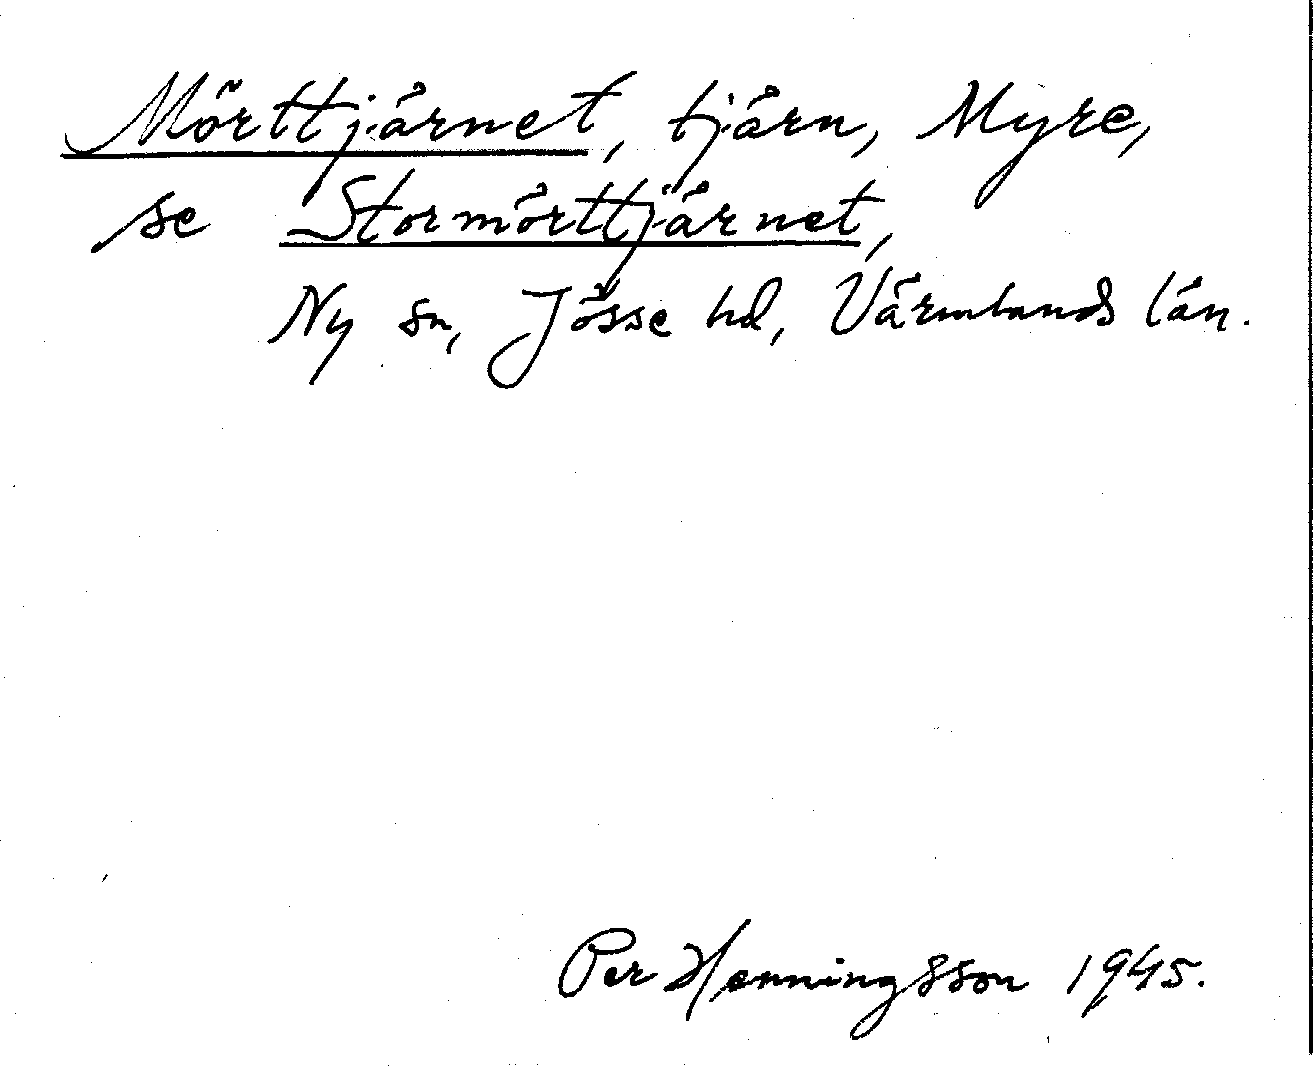 Mörttjärnet, tjärn, Myre,
se Stormörttjärnet,
Ny sn, Jösse hd, Värmlands län.
Per Henningsson 1945.